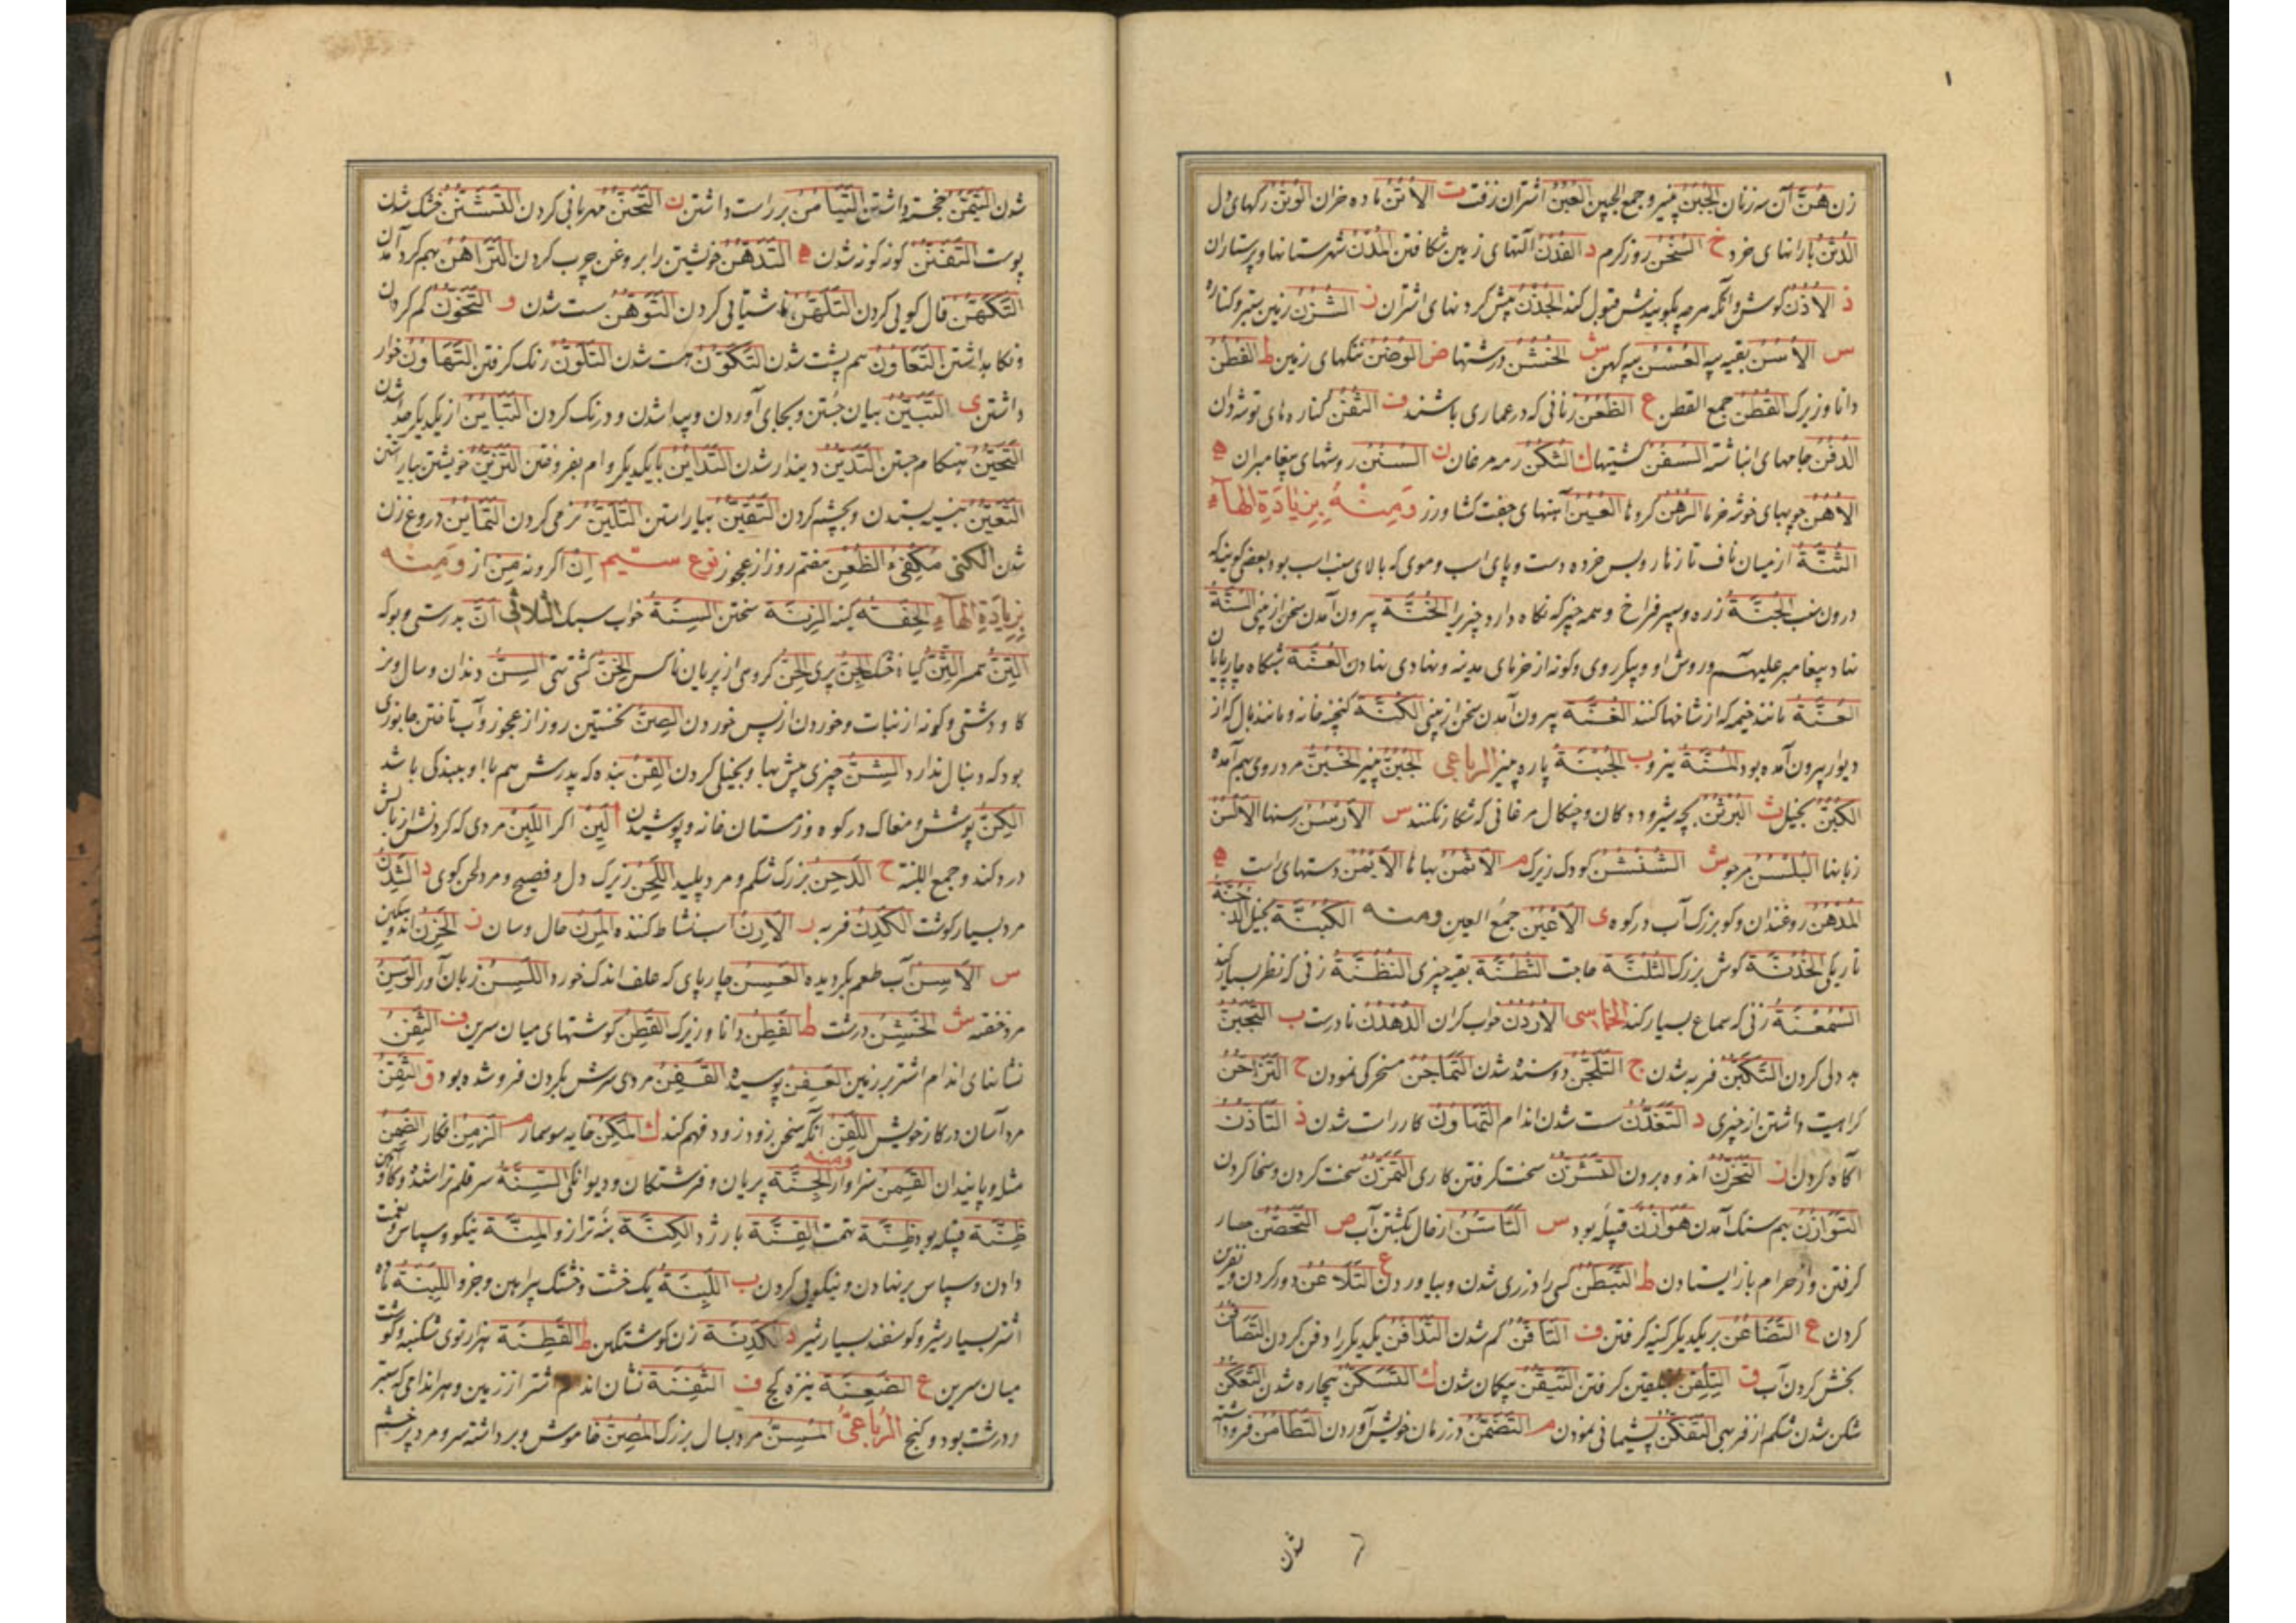 ۱
زن هُنَّ آن سه زنان الجُبُنُ پنیر و جمع الجبین العُبُنُ اشتران زفت ت الاُتُنُ ماده خران الوُتُنُ رگهای دل
الدُثُنُ بارانهای خرد خ السُخُنُ روز کرم د الفُدُنُ آلتهای زمین شکافتن المُدُنُ شهرستانها و پرستاران
ذ الاُذُنُ کوش و آنکه هرچه بکویندش قبول کند الجُذُنُ پیش کردنهای اشتران ز الشُزُنُ زمین ستبر و کناره
س الاُسُنُ بقیه پیه العُسُنُ پیه کهن ش الخُشُنُ درشتها ض الوُضُنُ تنکهای زمین ط الفُطُنُ
دانا و زیرک القُطُنُ جمع القطن ع الظُعُنُ زنانی که در عماری باشند ف الثُفُنُ کناره های توشه دان
الدُفُنُ جامهای انباشته السُفُنُ کشتیها ك الثُكُنُ رمه مرغان ن السُنُنُ روشهای پیغامبران ه
الاُهُنُ چوبهای خوشه خرما الرُهُنُ کروها العُیُنُ آهنهای جفت کشاورز وَمِنْهُ بِزِیَادَةِ الهَآءِ
الثُنَّةُ از میان ناف تا زهار و پس خرده دست و پای اسب و موی که بالای سنب اسب بود بعضی کویند که
درون سنب الجُنَّةُ زره و سپر فراخ و همه چیز که نکاه دارد چیزیرا الخُنَّةُ بیرون آمدن سخن از بینی السُنَّةُ
نهاد پیغامبر علیهم و روش او و پیکر روی و کونه از خرمای مدینه و نهادی نهادن العُنَّةُ شبکاه چارپایان
العُنَّةُ مانند خیمه که از شاخها کنند الغُنَّةُ بیرون آمدن سخن از بینی الکُنَّةُ کنجینه خانه و مانند بال که از
دیوار بیرون آمده بود المُنَّةُ نیرو ب الجُبنَةُ پاره پنیر الرباعی الجُبُنُّ پنیر الخُبُنُّ مرد روی بهم آمده
الکُبُنُّ بخیل ث البُرثُنُ بچه شیر و ددکان و چنکال مرغانی که شکار نکنند س الاَرسُنُ رسنها الاَلسُنُ
زبانها البُلسُنُ مرجو ش الشُنشُنُ کودک زیرک م الاَثمُنُ بهاها الاَیمُنُ دستهای راست ه
المُدهُنُ روغندان و کو بزرک آب در کوه ی الاَعیُنُ جمع العین ومنه الکُبُنَّةُ بخیل الدُخُنَّةُ
تاریکی الخُذُنَّةُ کوش بزرک التُلُنَّةُ حاجت بقیه چیزی النُظُنَّةُ زنی که نظر بسیار کند
السُمعُنَّةُ زنی که سماع بسیار کند الخماسی الاُردُنُّ خواب کران الدُهدُنُّ نادرست ب التَجَبُّنُ
بددلی کردن التَکَبُّنُ فربه شدن ج التَلَجُّنُ دوسنده شدن التَمَاجُنُ مسخرکی نمودن ح التَزَاحُنُ
کراهیت داشتن از چیزی د التَغَدُّنُ سست شدن اندام التَهَاوُنُ کار راست شدن ذ التَأَذُّنُ
آکاه کردن ز التَحَزُّنُ اندوه بردن التَشَزُّنُ سخت کرفتن کاری التَمَزُّنُ سخت کردن و سخا کردن
التَوَازُنُ بهم سنک آمدن هَوَازِنُ قبیله بود س التَأَسُّنُ از حال بکشتن آب ص التَحَصُّنُ حصار
کرفتن و از حرام باز ایستادن ط التَبَطُّنُ کسی را وبیاوردن ع التَلَاعُنُ دور کردن و نفرین
کردن ع التَضَاغُنُ بر یکدیکر کینه کرفتن ف التَأَفُّنُ کم شدن التَدَافُنُ یکدیکر را دفن کردن التَصَافُنُ
بخش کردن آب ق التَلَقُّنُ تلقین کرفتن التَیَقُّنُ بیکمان شدن ك التَسَکُّنُ بیچاره شدن التَعَکُّنُ
شکن شکن شدن شکم از فربهی التَفَکُّنُ پشیمانی نمودن م التَضَمُّنُ در زمان خویش آوردن التَطَامُنُ فرود آ
شدن
شدن التَیَمُّنُ خجسته داشتن التَیَامُنُ بر راست داشتن ن التَحَنُّنُ مهربانی کردن التَشَنُّنُ خشک شدن
پوست التَفَنُّنُ کونه کونه شدن ه التَدَهُّنُ خویشتن را بروغن چرب کردن التَرَاهُنُ بهم کرو آمدن
التَکَهُّنُ فال کویی کردن التَلَهُّنُ ناشتایی کردن التَوَهُّنُ سست شدن و التَخَوُّنُ کم کردن
و نکاهداشتن التَعَاوُنُ هم پشت شدن التَکَوُّنُ هست شدن التَلَوُّنُ رنک کرفتن التَهَاوُنُ خوار
داشتن ی التَبَیُّنُ بیان جستن و بجای آوردن و پیدا شدن و درنک کردن التَبَایُنُ از یکدیکر جدا شدن
التَحَیُّنُ هنکام جستن التَدَیُّنُ دیندار شدن التَدَایُنُ با یکدیکر وام بفروختن التَزَیُّنُ خویشتن بیاراستن
التَعَیُّنُ بنسیه ستدن و بچشم کردن التَقَیُّنُ بیاراستن التَلَیُّنُ نرمی کردن التَمَایُنُ دروغ زن
شدن الکنی مُکفِئُ الظُعُنِ هفتم روز از عجوز نوع سیم اِن اکر و نه مِن از وَمِنْه
بِزِیَادَةِ الهَآءِ الحِفَنَةُ کینه الزِنَةُ سختن السِنَةُ خواب سبک الثلاثی اِنَّ بدرستی و بوکه
التِنُّ همسر الثِنُّ کیاه خشک الجِنُّ پری الحِنُّ کروهی از پریان ناکس الخِنُّ کشتی تهی السِنُّ دندان و سال و نر
کاو دشتی و کونه از نبات و خوردن از پس خوردن الصِنُّ نخستین روز از عجوز و آب تاختن جانوری
بود که دنبال ندارد الضِنُّ چیزی بیش بها و بخیلی کردن القِنُّ بنده که پدرش هم با او ببندکی باشد
الکِنُّ پوشش و مغاک در کوه و زمستان خانه و پوشیدن ا لَئِنْ اکر اللَبِنُ مردی که کردنش از بالش
درد کند و جمع اللبنة ح الدَحِنُ بزرک شکم و مرد پلید اللَحِنُ زیرک دل و فصیح و مرد لحن کوی د الثَدِنُ
مرد بسیار کوشت الکَدِنُ فربه ر الاَرِنُ اسب نشاط کننده المَرِنُ حال و سان ز الحَزِنُ اندوهکین
س الاَسِنُ آب طعم بکردیده العَسِنُ چارپای که علف اندک خورد اللَسِنُ زبان آور الوَسِنُ
مرد خفته ش الخَشِنُ درشت ط الفَطِنُ دانا و زیرک القَطِنُ کوشتهای میان سرین ف الثَفِنُ
نشانهای اندام اشتر بر زمین العَفِنُ پوسیده القَفِنُ مردی سرش بکردن فرو شده بود ق التَقِنُ
مرد آسان در کار خویش اللَقِنُ آنکه سخن زود زود فهم کند ك المَکِنُ خایه سوسمار م الزَمِنُ افکار الضَمِنُ
مثله و پایندان القَمِنُ سزاوار ومنه الجِنَّةُ پریان و فرشتکان و دیوانکی السِنَّةُ سر قلم تراشیده و کاو آهن
ظِنَّةُ قبیله بود ظِنَّةُ تهمت القِنَّةُ بارزد الکِنَّةُ بنه ترازو المِنَّةُ نیکو و سپاس و نعمت
دادن و سپاس برنهادن و نیکویی کردن ب اللَبِنَةُ یک خشت و خشتک پیراهن و جزو اللَبِنَةُ ماده
اشتر بسیار شیر و کوسفند بسیار شیر د الکَدِنَةُ زن کوشتکین ط القَطِنَةُ هزارتوی شکنبه و کوشت
میان سرین ع الضَعِنَةُ نیزه کج ف الثَفِنَةُ نشان اندام اشتر از زمین و هر اندامی که ستبر
و درشت بود و کنج الرُباعیُّ المُسِنُّ مرد بسال بزرک المُصِنُّ خاموش و برداشته سر و مرد پر خشم